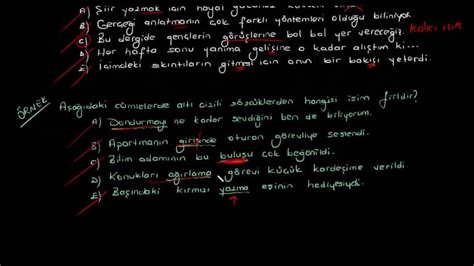 A) Şiir yazmak için hayal
B) Gerçeği anlatmanın çok farklı yöntemleri olduğu biliniyor.
C) Bu dergide gençlerin görüşlerine bol bol yer vereceğiz. Kalıcı isim
D) Her hafta sonu yanıma gelişine o kadar alıştım ki...
E) İçimdeki sıkıntıların gitmesi için onun bir bakışı yeterdi.
ÖRNEK Aşağıdaki cümlelerde altı çizili sözcüklerden hangisi isim fiildir?
A) Dondurmayı ne kadar sevdiğini ben de biliyorum.
B) Apartmanın girişinde oturan görevliye seslendi.
C) Bilim adamının bu buluşu çok beğenildi.
D) Konukları ağırlama görevi küçük kardeşime verildi.
E) Başındaki kırmızı yazma eşinin hediyesiydi.